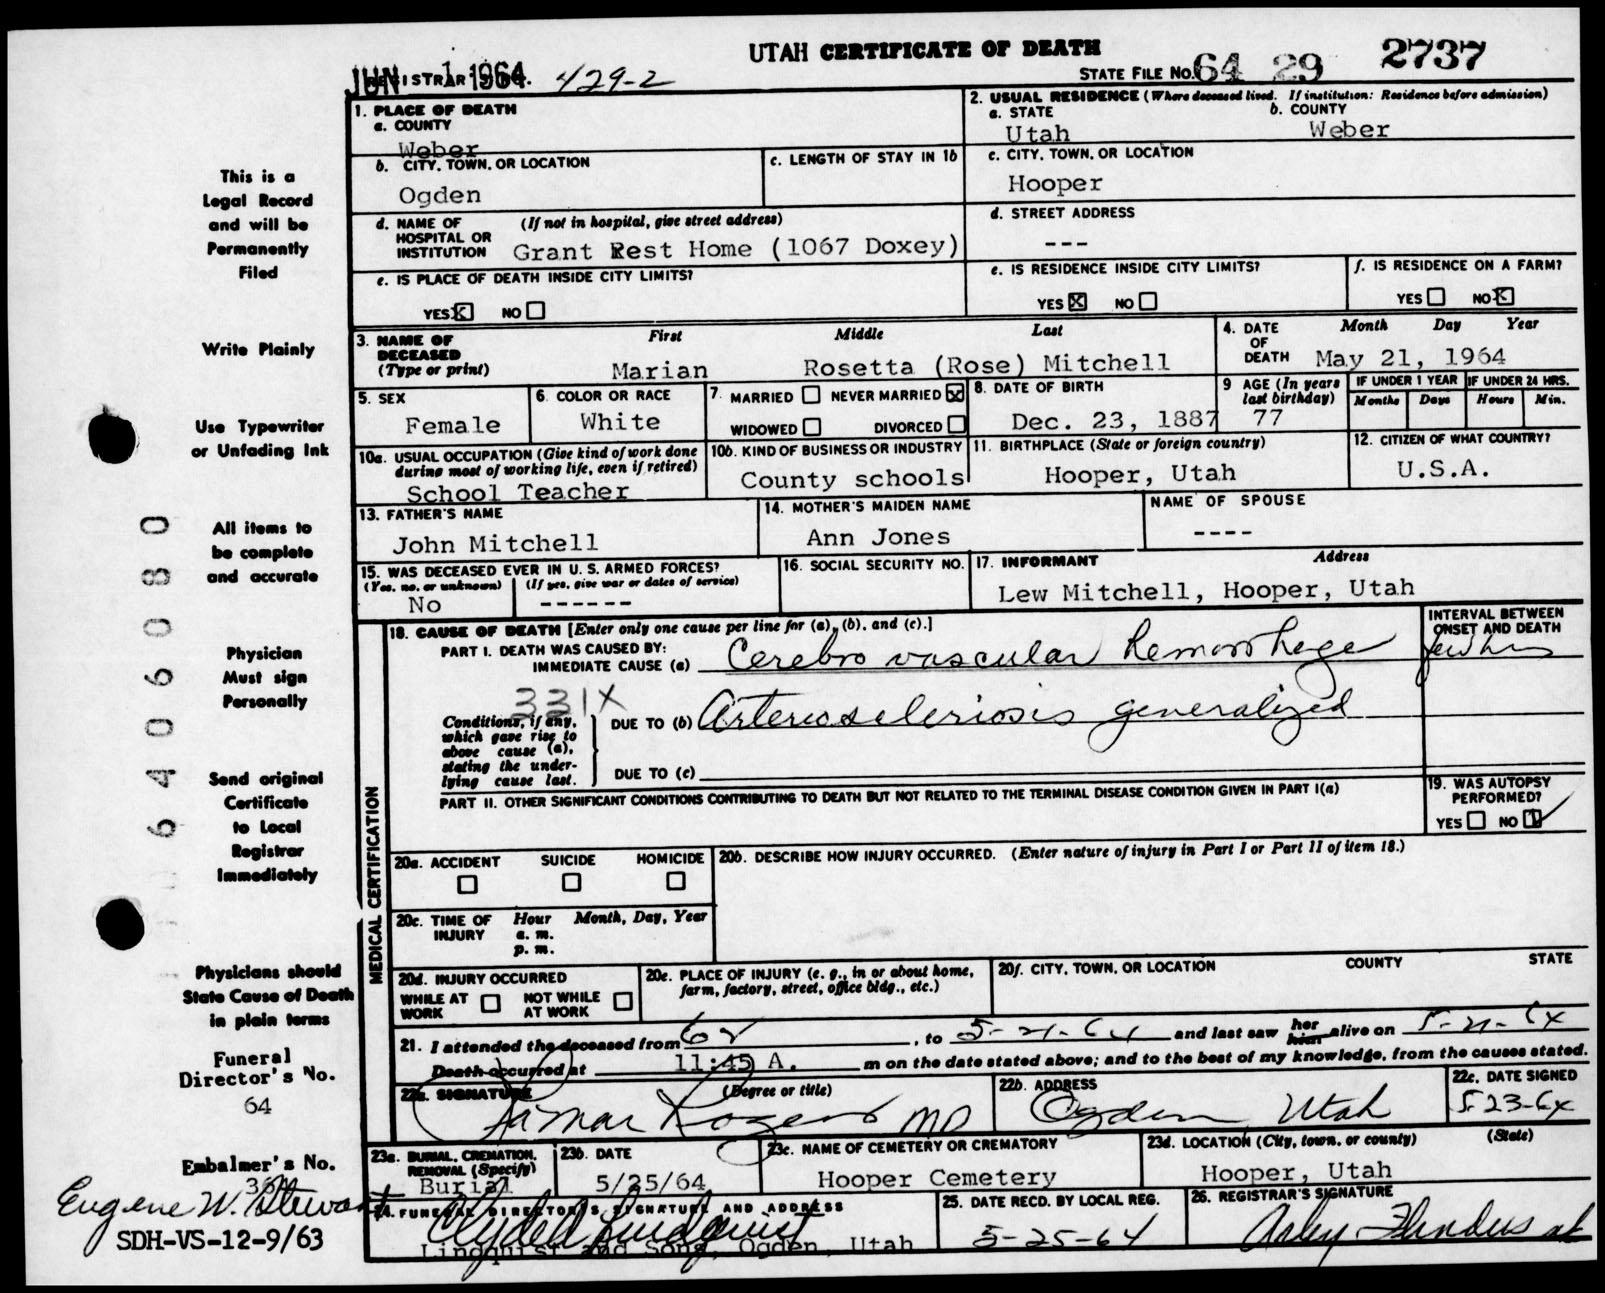 UTAH CERTIFICATE OF DEATH
JUN 1 1964
REGISTRAR'S NO. 429-2
STATE FILE NO. 64 29 2737
1. PLACE OF DEATH
a. COUNTY
Weber
2. USUAL RESIDENCE (Where deceased lived. If institution: Residence before admission)
a. STATE b. COUNTY
Utah Weber
b. CITY, TOWN, OR LOCATION
Ogden
c. LENGTH OF STAY IN 1b
c. CITY, TOWN, OR LOCATION
Hooper
d. NAME OF HOSPITAL OR INSTITUTION (If not in hospital, give street address)
Grant Rest Home (1067 Doxey)
d. STREET ADDRESS
---
e. IS PLACE OF DEATH INSIDE CITY LIMITS?
YES☒ NO☐
e. IS RESIDENCE INSIDE CITY LIMITS?
YES☒ NO☐
f. IS RESIDENCE ON A FARM?
YES☐ NO☒
3. NAME OF DECEASED (Type or print)
First Middle Last
Marian Rosetta (Rose) Mitchell
4. DATE OF DEATH Month Day Year
May 21, 1964
5. SEX
Female
6. COLOR OR RACE
White
7. MARRIED☐ NEVER MARRIED☒
WIDOWED☐ DIVORCED☐
8. DATE OF BIRTH
Dec. 23, 1887
9 AGE (In years last birthday)
77
IF UNDER 1 YEAR
Months Days
IF UNDER 24 HRS.
Hours Min.
10a. USUAL OCCUPATION (Give kind of work done during most of working life, even if retired)
School Teacher
10b. KIND OF BUSINESS OR INDUSTRY
County schools
11. BIRTHPLACE (State or foreign country)
Hooper, Utah
12. CITIZEN OF WHAT COUNTRY?
U.S.A.
13. FATHER'S NAME
John Mitchell
14. MOTHER'S MAIDEN NAME
Ann Jones
NAME OF SPOUSE
----
15. WAS DECEASED EVER IN U. S. ARMED FORCES?
(Yes, no, or unknown) (If yes, give war or dates of service)
No ------
16. SOCIAL SECURITY NO.
17. INFORMANT Address
Lew Mitchell, Hooper, Utah
MEDICAL CERTIFICATION
18. CAUSE OF DEATH [Enter only one cause per line for (a), (b), and (c).]
INTERVAL BETWEEN ONSET AND DEATH
PART I. DEATH WAS CAUSED BY:
IMMEDIATE CAUSE (a) Cerebro vascular hemorrhage few hrs
331X
Conditions, if any, which gave rise to above cause (a), stating the underlying cause last.
DUE TO (b) Arteriosclerosis generalized
DUE TO (c)
PART II. OTHER SIGNIFICANT CONDITIONS CONTRIBUTING TO DEATH BUT NOT RELATED TO THE TERMINAL DISEASE CONDITION GIVEN IN PART I(a)
19. WAS AUTOPSY PERFORMED?
YES☐ NO☑
20a. ACCIDENT SUICIDE HOMICIDE
☐ ☐ ☐
20b. DESCRIBE HOW INJURY OCCURRED. (Enter nature of injury in Part I or Part II of item 18.)
20c. TIME OF INJURY Hour Month, Day, Year
a. m.
p. m.
20d. INJURY OCCURRED
WHILE AT WORK ☐ NOT WHILE AT WORK ☐
20e. PLACE OF INJURY (e. g., in or about home, farm, factory, street, office bldg., etc.)
20f. CITY, TOWN, OR LOCATION COUNTY STATE
21. I attended the deceased from 62, to 5-21-64 and last saw her him alive on 5-21-64
Death occurred at 11:45 A. m on the date stated above; and to the best of my knowledge, from the causes stated.
22a. SIGNATURE (Degree or title)
LaMar Rogers MD
22b. ADDRESS
Ogden, Utah
22c. DATE SIGNED
5-23-64
23a. BURIAL, CREMATION, REMOVAL (Specify)
Burial
23b. DATE
5/25/64
23c. NAME OF CEMETERY OR CREMATORY
Hooper Cemetery
23d. LOCATION (City, town, or county) (State)
Hooper, Utah
24. FUNERAL DIRECTOR'S SIGNATURE AND ADDRESS
Clyde Lindquist
Lindquist and Sons, Ogden, Utah
25. DATE RECD. BY LOCAL REG.
5-25-64
26. REGISTRAR'S SIGNATURE
Flinders
This is a
Legal Record
and will be
Permanently
Filed
Write Plainly
Use Typewriter
or Unfading Ink
All items to
be complete
and accurate
Physician
Must sign
Personally
Send original
Certificate
to Local
Registrar
Immediately
Physicians should
State Cause of Death
in plain terms
Funeral
Director's No.
64
Embalmer's No.
Eugene W. Stewart
SDH-VS-12-9/63
6406080